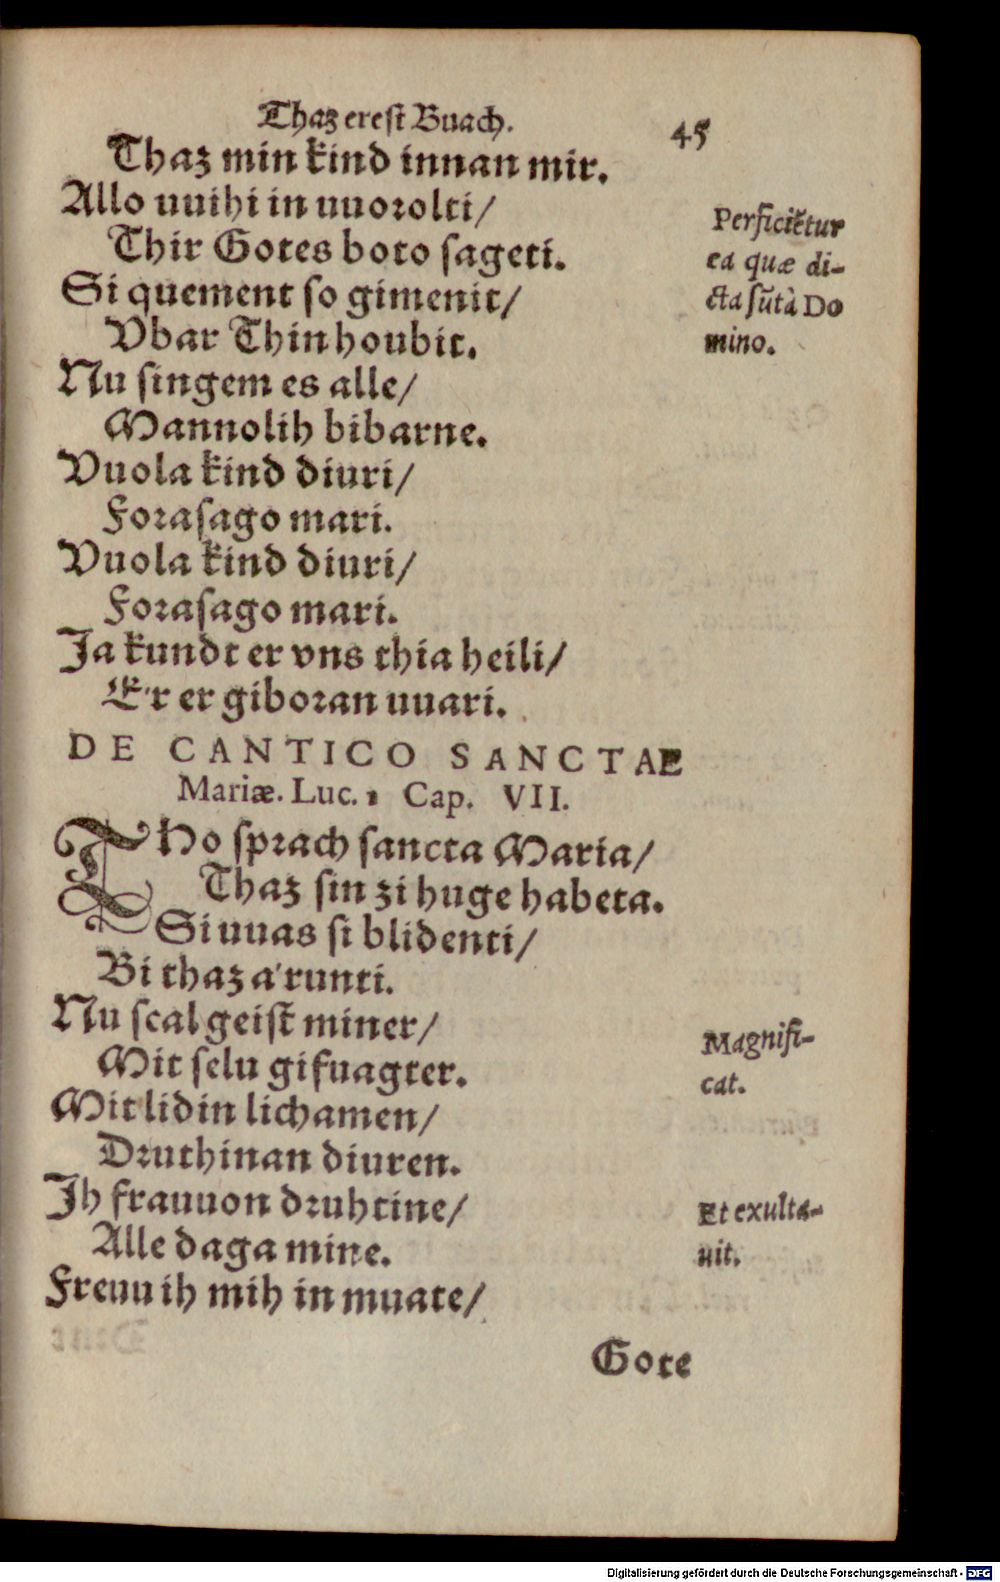 Thaz erest Buach.
45
Thaz min kind innan mir.
Allo uuihi in uuorolti/
Thir Gotes boto sageti.
Si quement so gimenit/
Vbar Thin houbit.
Perficiẽtur
ea quæ di-
cta sũt à Do
mino.
Nu singem es alle/
Mannolih bibarne.
Vuola kind diuri/
Forasago mari.
Vuola kind diuri/
Forasago mari.
Ja kundt er vns thia heili/
E'r er giboran uuari.
DE CANTICO SANCTAE
Mariæ. Luc. 1 Cap. VII.
THo sprach sancta Maria/
Thaz sin zi huge habeta.
Si uuas si blidenti/
Bi thaz a'runti.
Nu scal geist miner/
Mit selu gifuagter.
Magnifi-
cat.
Mit lidin lichamen/
Druthinan diuren.
Jh frauuon druhtine/
Alle daga mine.
Et exulta-
uit.
Freuu ih mih in muate/
Gote
Digitalisierung gefördert durch die Deutsche Forschungsgemeinschaft - DFG